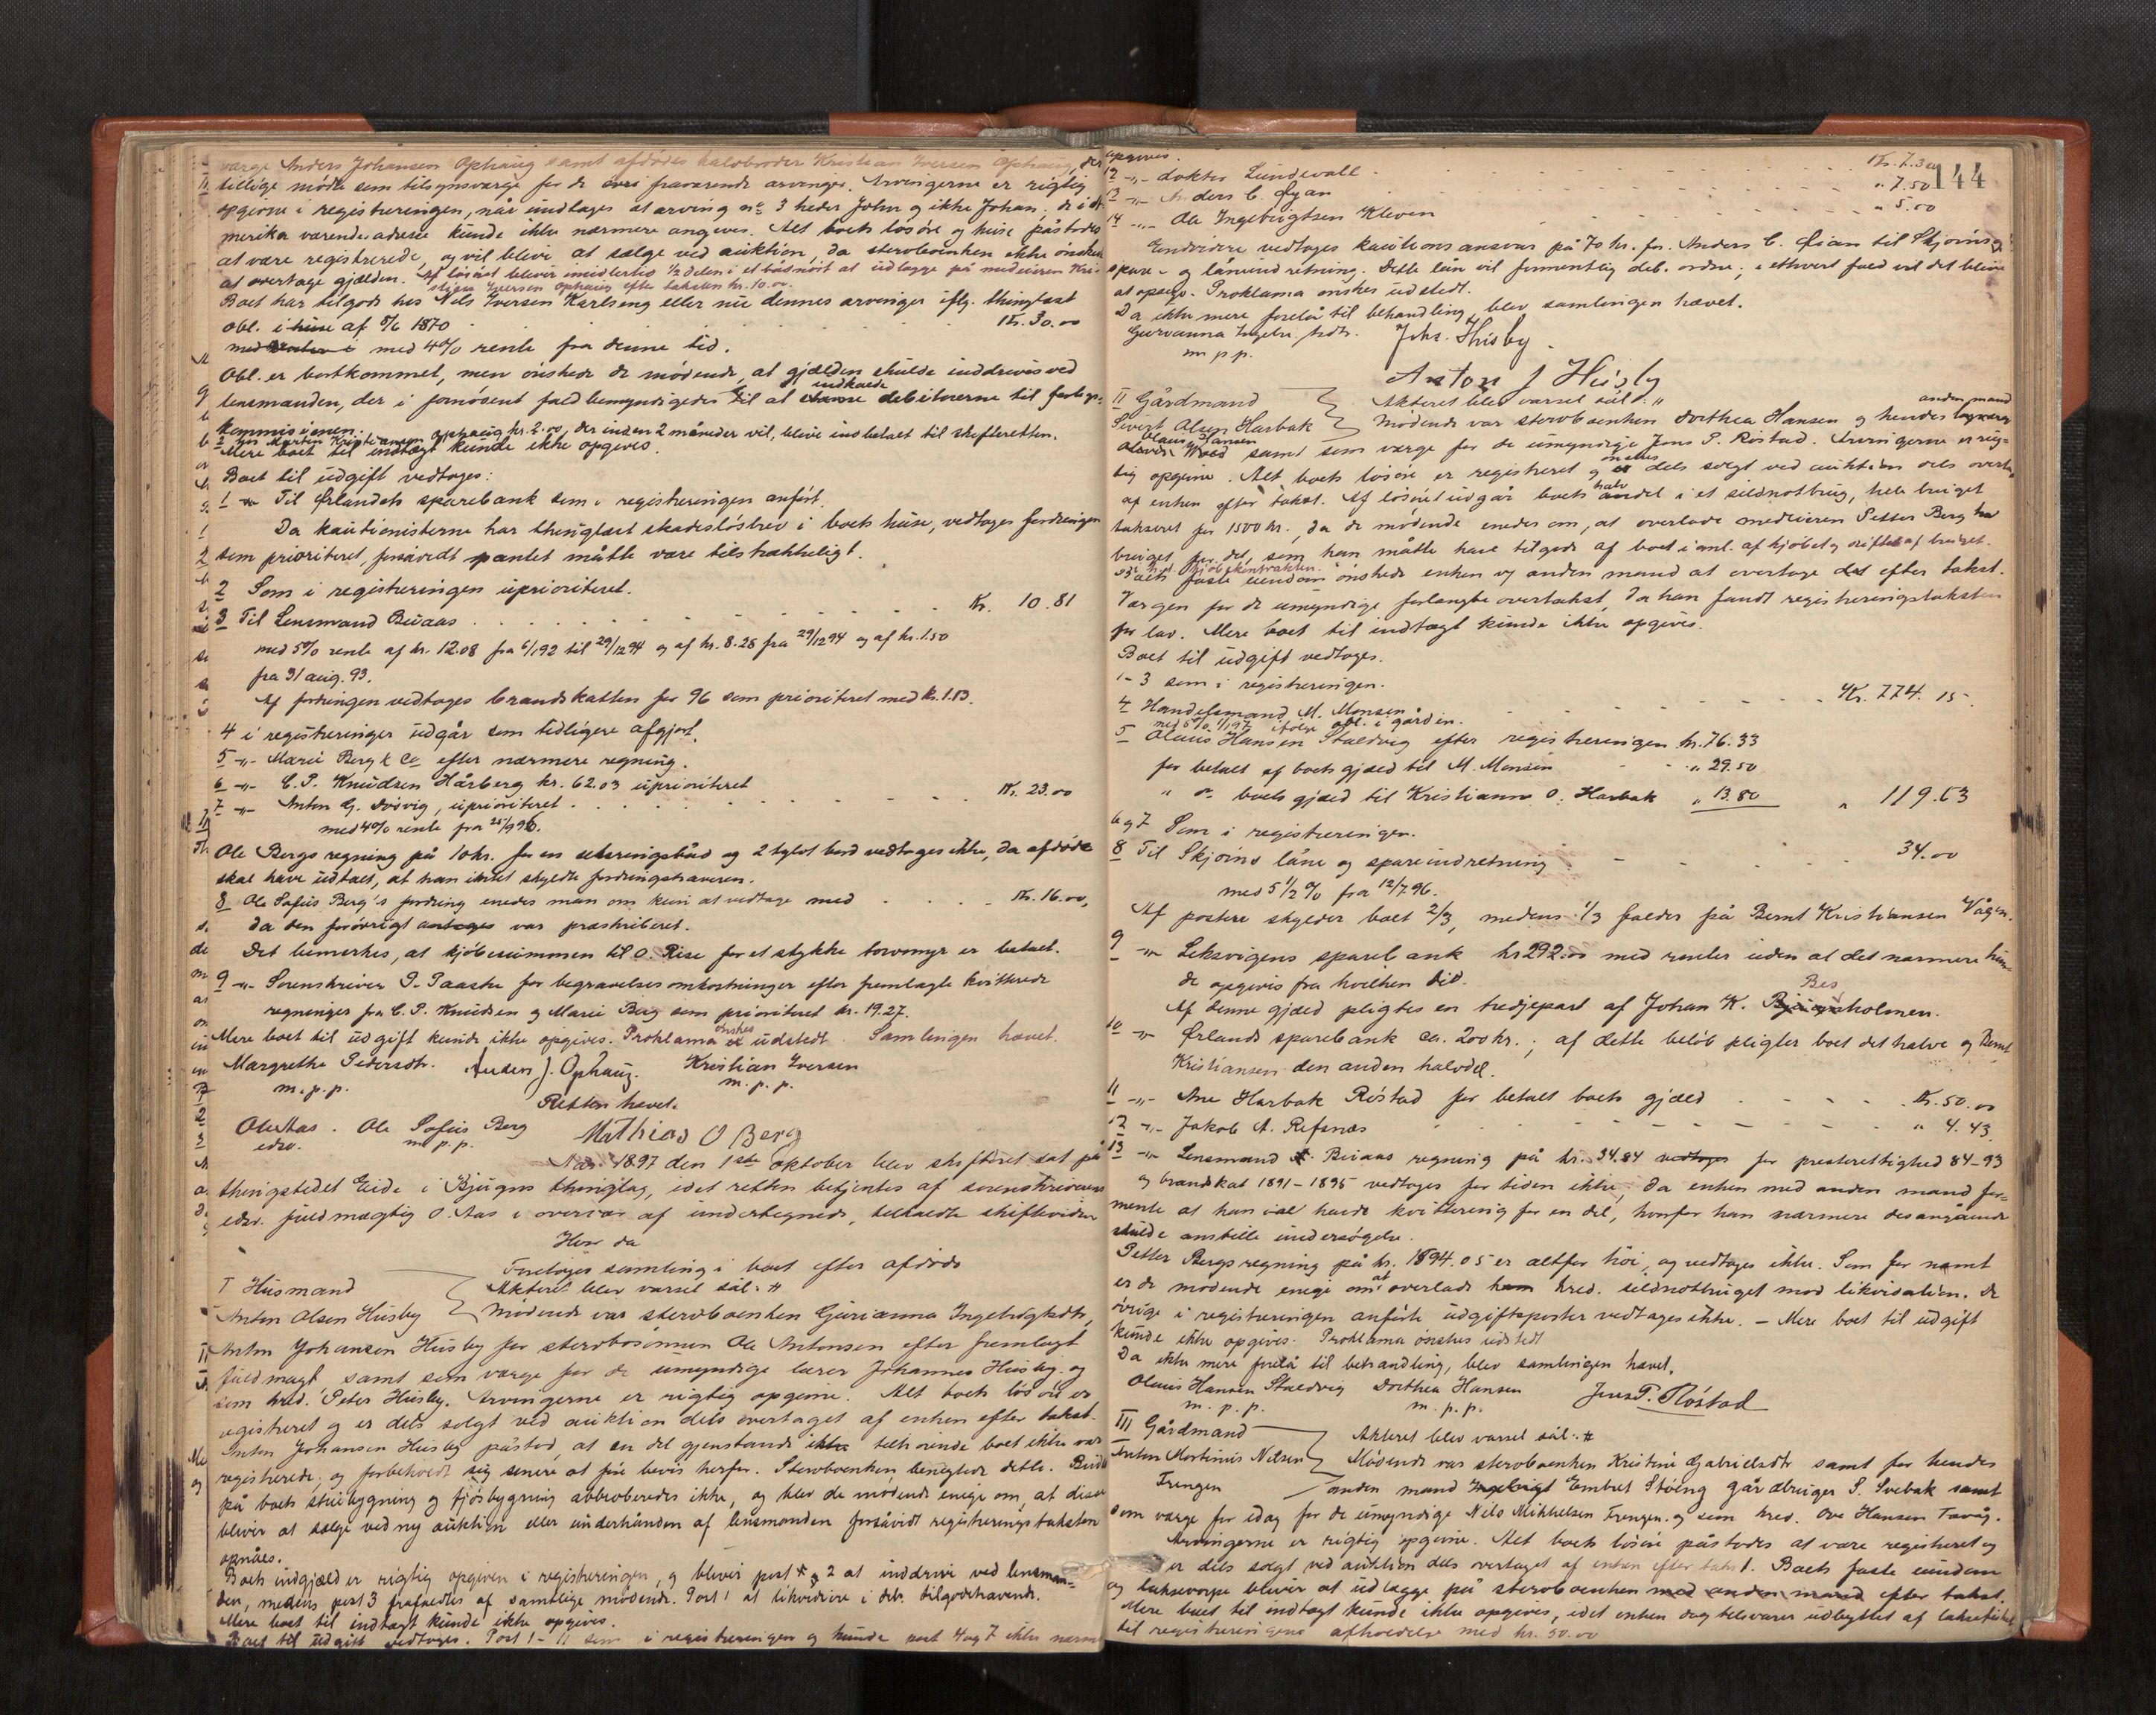 værge Anders Johansen Ophaug samt afdødes halvbroder Kristian Iversen Ophaug, der
tillige mødte som tilsynsværge for de øvri fraværende arvinger. Arvingerne er rigtig
opgivne i registreringen, når undtages at arving no 3 heder John og ikke Johan, de i A-
merika værendes adresse kunde ikke nærmere angives. Alt boets løsøre og huse påstodes
at være registrerede, og vil blive at sælge ved auktion, da sterboenken ikke ønsker
at overtage gjælden. Af løsøret bliver imidlertid 1/2 delen i et bådnøst at udlægge på medeieren Kri-
stian Iversen Ophaug efter taksten kr. 10.00.
Boet har tilgode hos Nels Iversen Karlseng eller nu dennes arvinger iflg. thinglæst
obl. i huse af 8/6 1870 . . . Kr. 30.00
med 4% rente fra denne tid.
Obl. er bortkommet, men ønskede de mødende, at gjælden skulde inddrives ved
lensmanden, der i fornødent fald bemyndigedes til at indkalde debitorerne til forligs-
kommisionen.
2 Martin Kristiansen Ophaug kr. 2.00, der inden 2 måneder vil blive indbetalt til skifteretten.
Mere boet til indtægt kunde ikke opgives.
Boet til udgift vedtoges:
1 " Til Ørlandets sparebank som i registreringen anført.
Da kautionisterne har thinglæst skadesløsbrev i boets huse, vedtages fordringen
som prioriteret, forsåvidt pantet måtte være tilstrækkeligt.
2 Som i registreringen uprioriteret.
3 Til Lensmand Buaas . . . Kr. 10.81
med 5% rente af kr. 12.08 fra 6/1 92 til 29/12 94 og af kr. 8.28 fra 29/12 94 og af kr. 1.50
fra 31 aug. 93.
Af fordringen vedtages brandskatten for 96 som prioriteret med kr. 1.13.
4 i registreringen udgår som tidligere afgjort.
5 -"- Marie Berg & Co efter nærmere regning.
6 -"- C. P. Knudsen Hårberg kr. 62.03 uprioriteret
7 -"- Anton G. Dosvig, uprioriteret . . . Kr. 23.00
med 4% rente fra 25/9 96.
Ole Bergs regning på 10 kr. for en båd og 2 tylvt bord vedtages ikke, da afdøde
skal have udtalt, at han intet skyldte fordringshaveren.
8 Ole Sofus Berg's fordring enedes man om kun at vedtage med . . . Kr. 16.00,
da den forøvrigt antages var præskriberet.
Det bemerkes, at kjøbesummen til O. Rise for et stykke torvmyr er betalt.
9 -"- Sorenskriver P. Paaske for begravelsesomkostninger efter fremlagte kvitterede
regninger fra C. P. Knudsen og Marie Berg som prioriteret kr. 19.27.
Mere boet til udgift kunde ikke opgives. Proklama ønskes udstedt. Samlingen hævet.
Margrethe Pedersdtr. Anders J. Ophaug. Kristian Iversen
m. p. p. m. p. p.
Retten hævet.
Ole Aas . Ole Sofus Berg Mathias O Berg
edsv. m p. p.
Aar 1897 den 1ste oktober blev skifteret sat på
thingstedet Eide i Bjugns thinglag, idet retten betjentes af sorenskriverens
edsv. fuldmægtig O. Aas i overvær af undertegnede, tilkaldte skiftevidner
Hvor da
Foretoges samling i boet efter afdøde
I Husmand Akteret blev varsel sål. "
Anton Olsen Husby Mødende var sterboenken Gurianna Ingebrigtsdtr,
Anton Johansen Husby for sterbosønnen Ole Antonsen efter fremlagt
fuldmagt samt som værge for de umyndige lærer Johannes Husby og
som kred. Peter Husby. Arvingerne er rigtig opgivne. Alt boets løsøre er
registreret og er dels solgt ved auktion dels overtaget af enken efter takst.
Anton Johansen Husby påstod, at en del gjenstande tilhørende boet ikke var
registrerede, og forbeholdt sig senere at føre bevis herfor. Sterboenken benegtede dette. Budet
på boets stuebygning og fjøsbygning approberedes ikke, og blev de mødende enige om, at disse
bliver at sælge ved ny auktion eller underhånden af lensmanden forsåvidt registreringstaksten
opnåes.
Boets indgjæld er rigtig opgiven i registreringen, og bliver post 2 at inddrive ved lensman-
den, medens post 3 frafaldtes af samtlige mødende. Post 1 at likvidere i deb. tilgodehavende.
Mere boet til indtægt kunde ikke opgives.
Boet til udgift vedtoges. Post 1 - 11 som i registreringen og kunde post 4 og 7 ikke nærm
144
opgives.
12 -"- doktor Lundevall . . . Kr. 7.30
13 -"- Anders C. Øyan . . . " 7.50
14 -"- Ole Ingebrigtsen Kleven . . . " 5.00
Endvidere vedtages kautionsansvar på 70 kr. for Anders C. Øian til Skjørns
spare- og låneindretning. Dette lån vil formentlig deb. ordne; i ethvert fald vil det blive
at opsige. Proklama ønskes udstedt.
Da ikke mere forelå til behandling, blev samlingen hævet.
Gurianna Ingebr.sdtr. Johs. Husby.
m p p.
Anton J Husby
II Gårdmand Akteret blev varsel sål. "
Sivert Olsen Harbak Mødende var sterboenken Dorthea Hansen og hendes anden mand
Olaus Hansen samt som værge for de umyndige Jens P. Røstad. Arvingerne er rig-
tig opgivne. Alt boets løsøre er registreret og dels solgt ved auktion dels overta-
af enken efter takst. Af løsøret udgår boets halvdel i et sildnotbrug, hele bruget
takseret for 1500 kr., da de mødende enedes om, at overlade medeieren Petter Berg
bruget for det, som han måtte have tilgode af boet i anl. af kjøbet og driften af bruget.
Boets faste eiendom ønskede enken og anden mand at overtage efter takst.
Værgen for de umyndige forlangte overtakst, da han fandt registreringstaksten
for lav. Mere boet til indtægt kunde ikke opgives.
Boet til udgift vedtoges.
1 - 3 som i registreringen.
4 Handelsmand M. Monsen . . . Kr. 774. 15
med 5% 1/1 97 ifølge obl. i gården.
5 Olaus Hansen Staldvig efter registreringen kr. 76.33
for betalt af boets gjæld til M. Monsen " 29.50
" do boets gjæld til Kristianne O. Harbak " 13.80 " 119.63
6 og 7 Som i registreringen.
8 Til Skjørns låne og spareindretning . . . 34.00
med 5 1/2 % fra 12/7 96.
Af posten skylder boet 2/3, medens 1/3 falder på Bernt Kristiansen Vågen.
9 -"- Leksvigens sparebank kr 292.00 med renter uden at det nærmere kun-
de opgives fra hvilken tid.
Af denne gjæld pligtes en tredjepart af Johan K. Besholmen.
10 -"- Ørlands sparebank ca. 200 kr.; af dette beløb pligter boet det halve og Bernt
Kristiansen den anden halvdel.
11 -"- Ane Harbak Røstad for betalt boets gjæld . . . Kr. 50.00
12 -"- Jakob A. Refsnæs . . . " 4.43.
13 -"- Lensmand Buaas regning på kr. 34.84 for presterettighed 84-93
og brandskat 1891-1895 vedtages for tiden ikke, da enken med anden mand for-
mente at han havde kvittering for en del, hvorfor han nærmere desangående
skulde anstille undersøgelse.
Petter Bergs regning på kr. 1894.05 er altfor høi, og vedtages ikke. Som før nævnt
er de mødende enige om at overlade kred. sildnotbruget mod likvidation. De
øvrige i registreringen anførte udgiftsposter vedtages ikke. - Mere boet til udgift
kunde ikke opgives. Proklama ønskes udstedt
Da ikke mere forelå til behandling, blev samlingen hævet.
Olaus Hansen Staldvig Dorthea Hansen Jens P. Røstad
m. p. p. m. p. p.
III Gårdmand Akteret blev varsel sål. "
Anton Martinus Nilsen Mødende var sterboenken Kristine Gabrielsdtr samt for hendes
Frengen anden mand Embret Støeng gårdbruger S. Svebak samt
som værge for idag for de umyndige Nils Mikkelsen Frengen og som kred. Ove Hansen Tavåg.
Arvingerne er rigtig opgivne. Alt boets løsøre påstodes at være registreret og
er dels solgt ved auktion dels overtaget af enken efter takst. Boets faste eiendom
og laksevorpe bliver at udlægge på sterboenken med anden mand efter takst.
Mere boet til indtægt kunde ikke opgives, idet enken dog tilsvarer udbyttet af laksefisket
til registreringens afholdelse med kr. 50.00